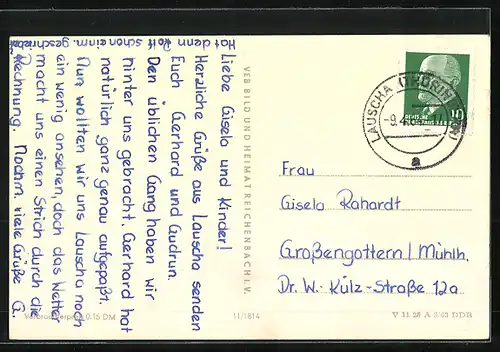 Liebe Gisela und Kinder!
Herzliche Grüße aus Lauscha senden
Euch Gerhard und Gudrun.
Den üblichen Gang haben wir
hinter uns gebracht. Gerhard hat
natürlich ganz genau aufgepaßt.
Nun wollten wir uns Lauscha noch
ein wenig ansehen, doch das Wetter
macht uns einen Strich durch die
Rechnung. Nochm. viele Grüße G.
Hat denn Rolf schon einm. geschrieben?
VEB BILD UND HEIMAT REICHENBACH I. V.
Verbraucherpreis 0,15 DM
11/1814
LAUSCHA (THÜRINGEN)
a
10
DEUTSCHE
Frau
Gisela Rahardt
Großengottern / Mühlh.
Dr. W.-Külz-Straße 12a
V 11 28 A 5/63 DDR